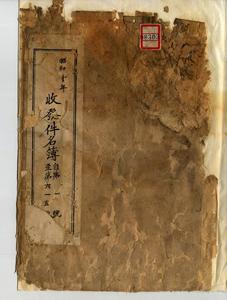 昭和十年
收發件名簿
自第一
至第六一五
號